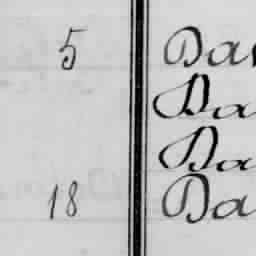 5 Da
Da
Da
18 Da